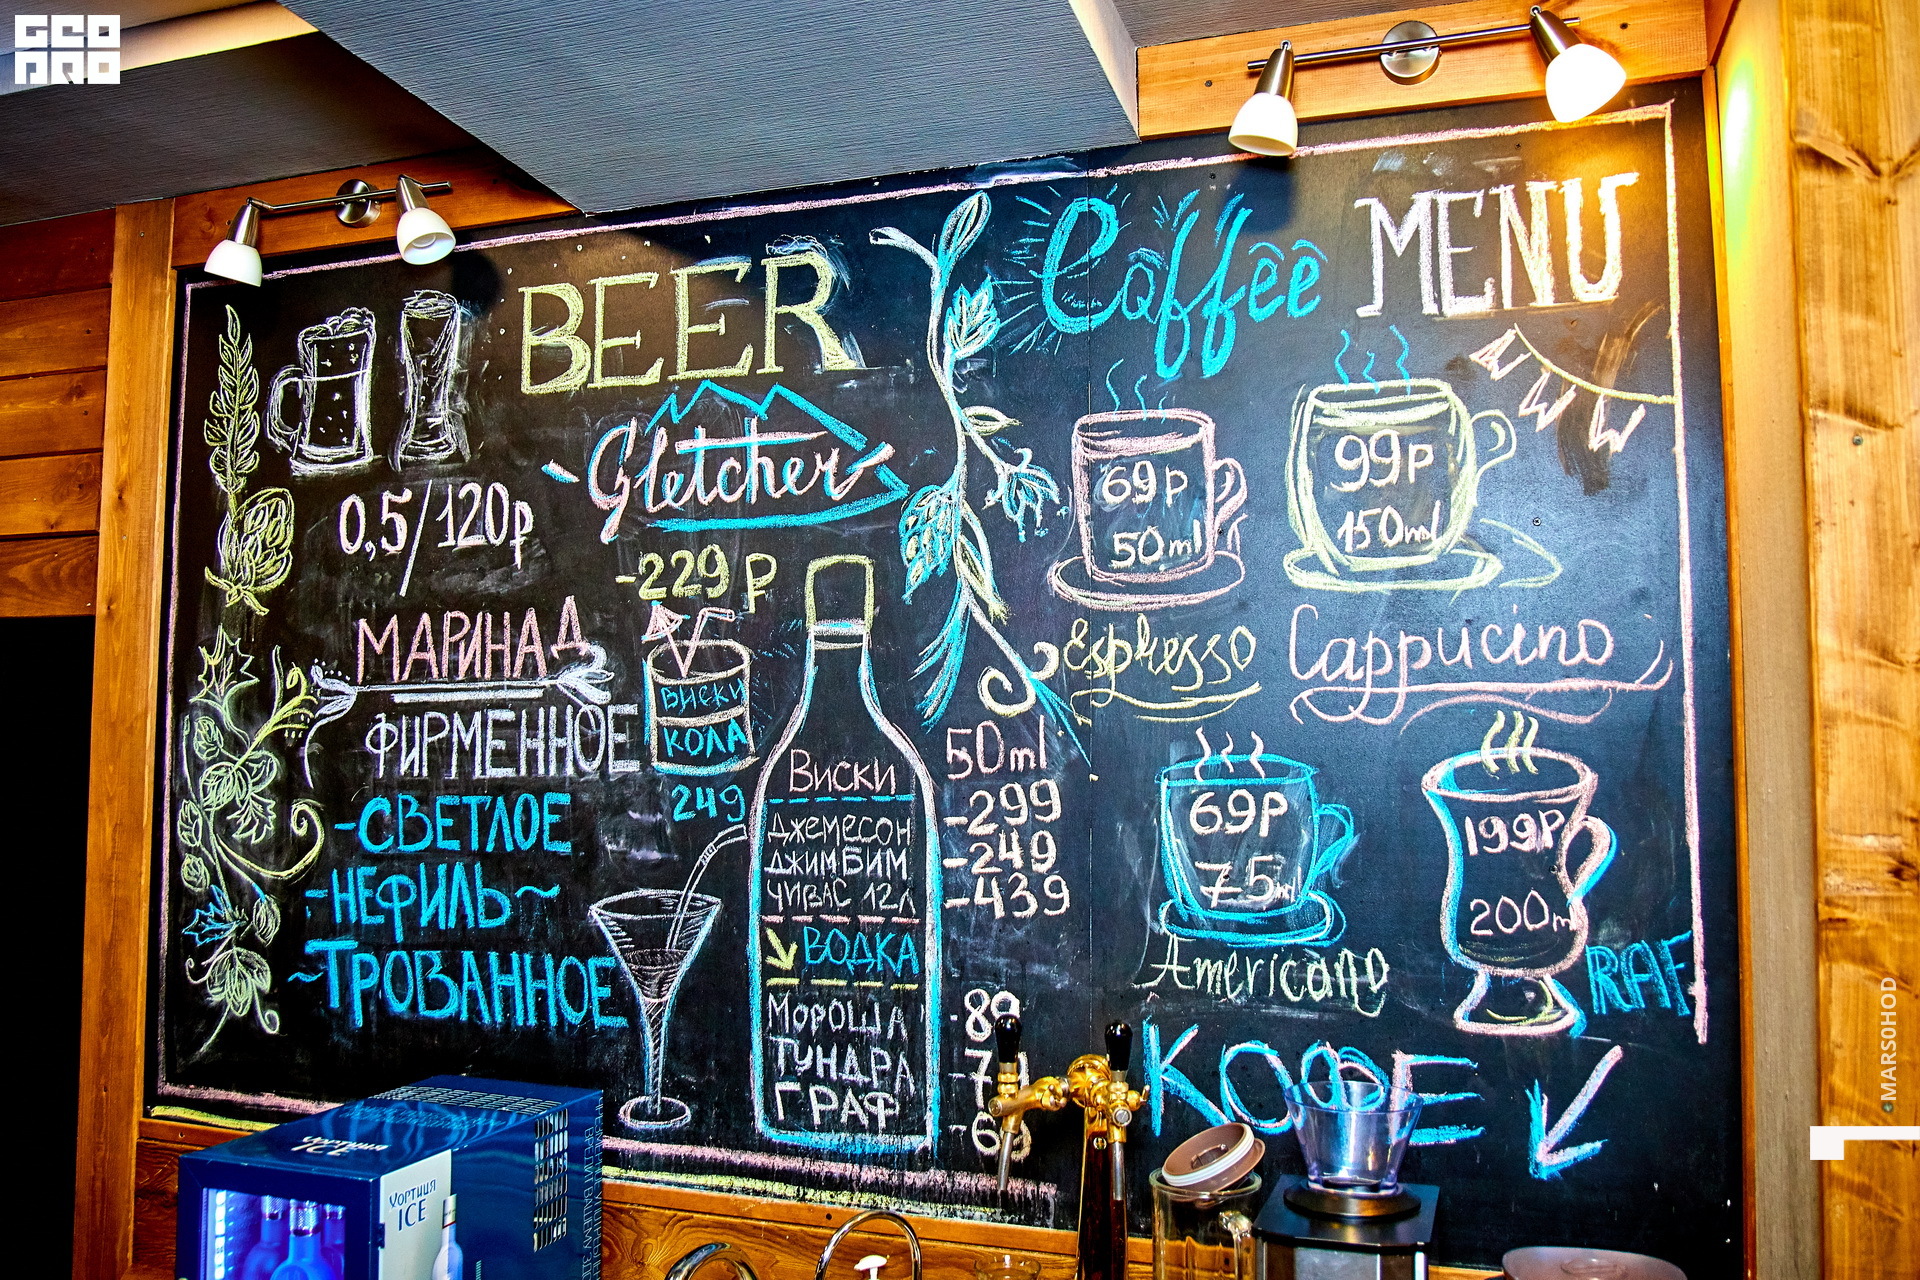 GEO
PRO
BEER
Gletcher
0,5/120р
-229 Р
МАРИНАД
ФИРМЕННОЕ
-СВЕТЛОЕ
-НЕФИЛЬ~
~ТРОВАННОЕ
ВИСКИ
КОЛА
249
ВИСКИ
50ml
ДЖЕМЕСОН -299
ДЖИМ БИМ -249
ЧИВАС 12Л -439
ВОДКА
МОРОША
ТУНДРА
ГРАФ
Coffee MENU
69р
50ml
Espresso
99р
150ml
Cappucino
69Р
75ml
Americano
199Р
200m
RAF
КОФЕ
ICE
ICE
MARSOHOD